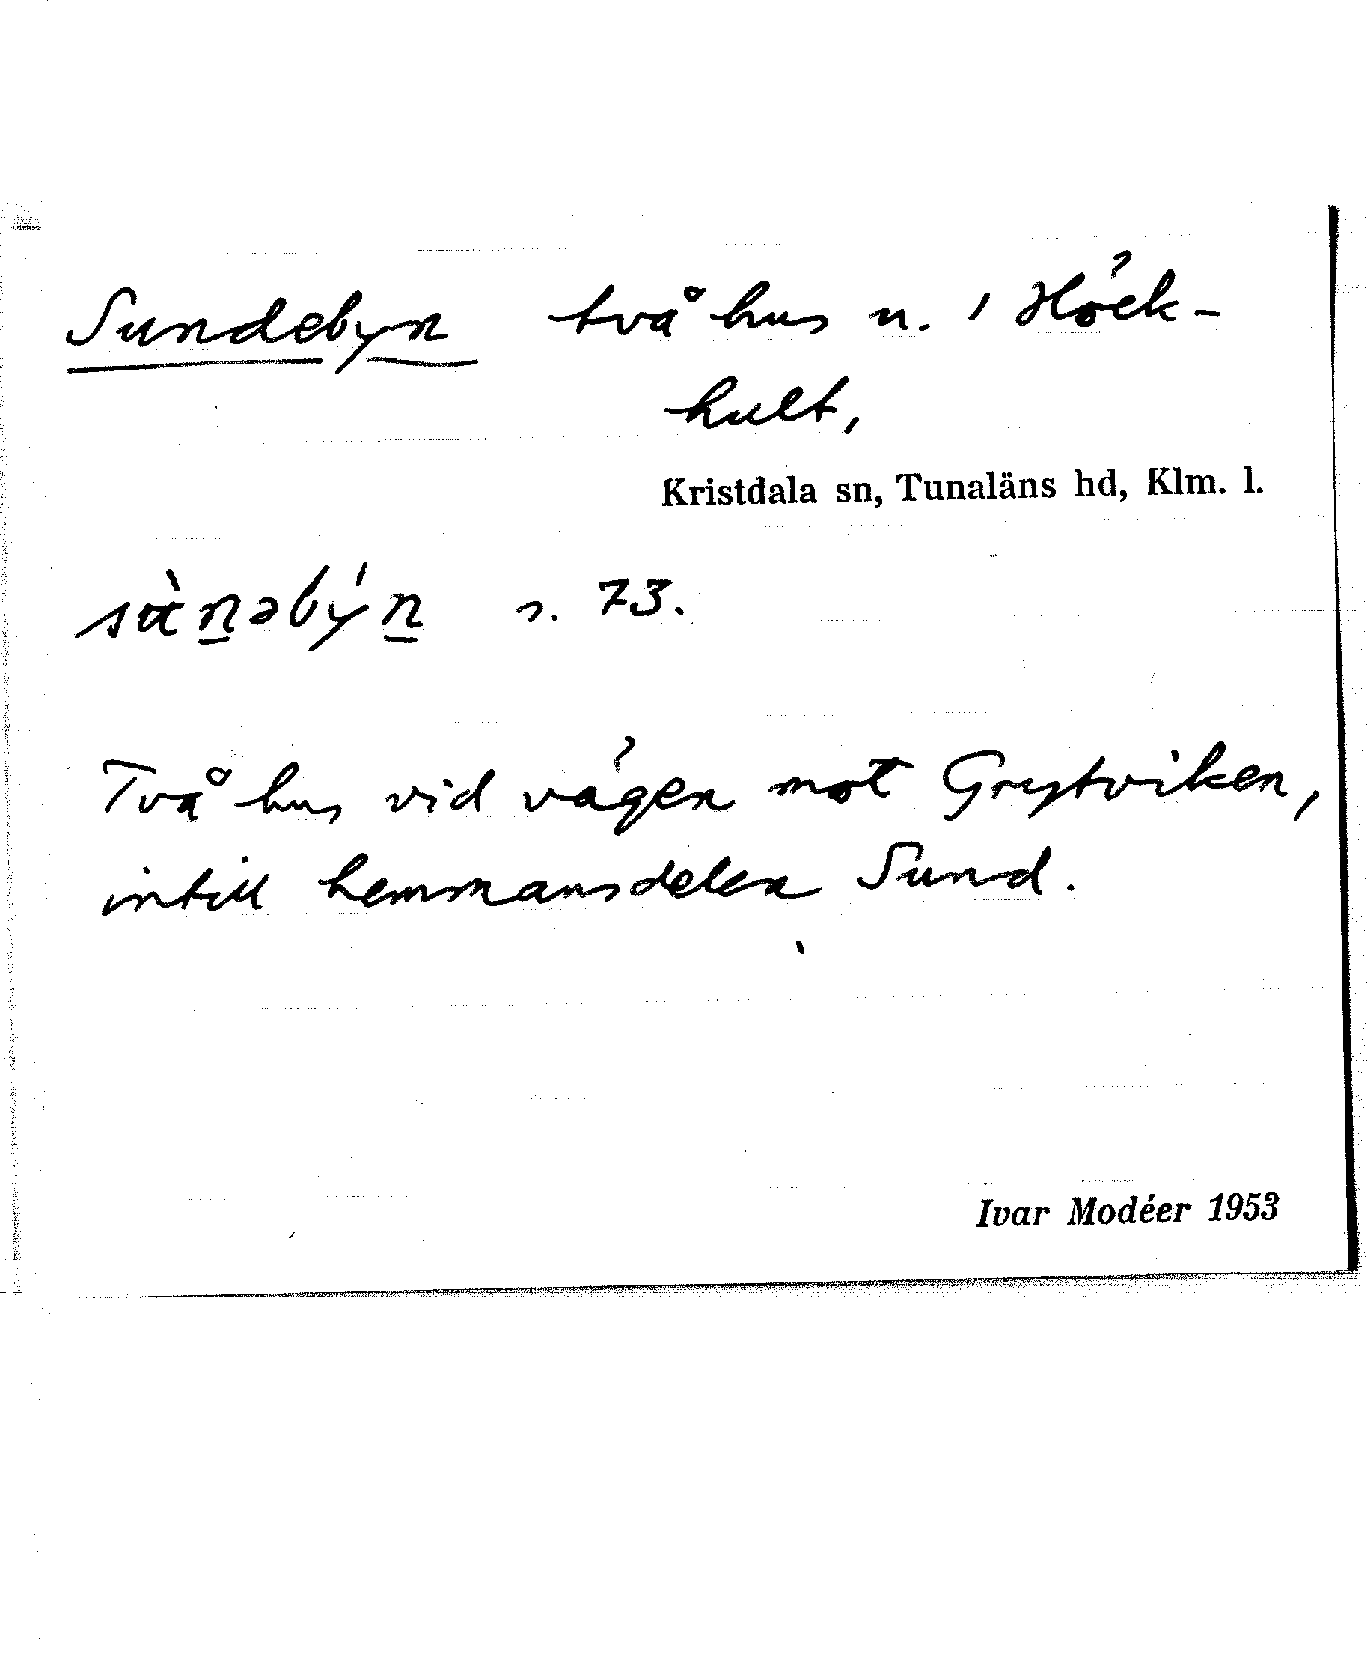 Sundebyn två hus n. i Höck-
hult,
Kristdala sn, Tunaläns hd, Klm. l.
sàn̲əbýn̲ s. 73.
Två hus vid vägen mot Grytviken,
intill hemmansdelen Sund.
Ivar Modéer 1953